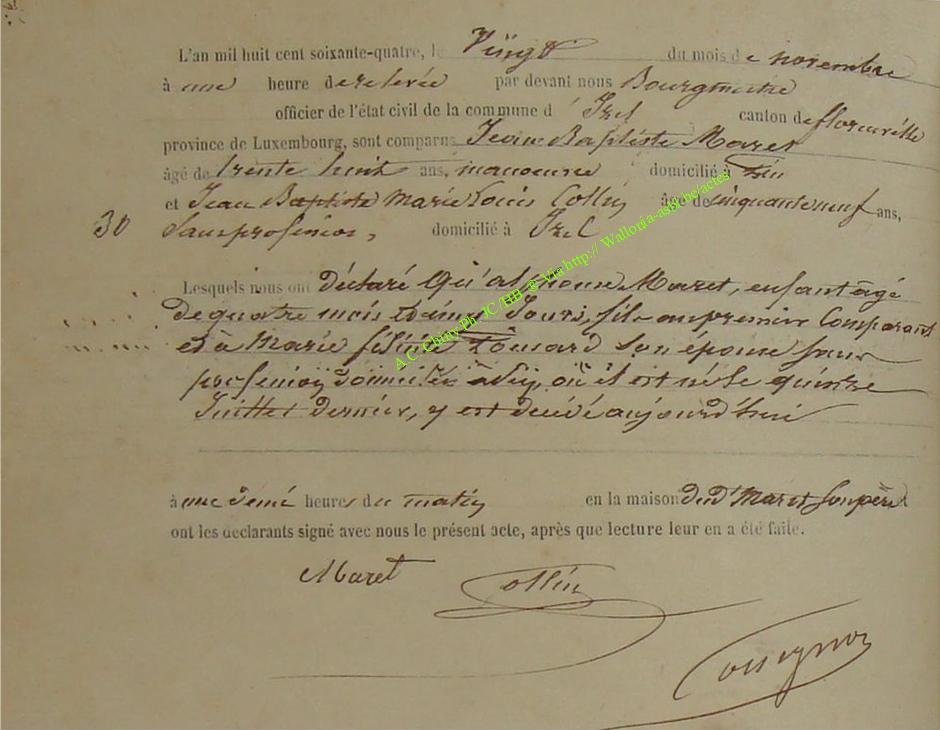 L'an mil huit cent soixante-quatre, le Vingt du mois de novembre
à une heure de relevée par devant nous Bourgmestre
officier de l'état civil de la commune d' Izel canton de florenville
province de Luxembourg, sont comparus Jean Baptiste Maret
âgé de trente huit ans, manoeuvre domicilié à
et Jean Baptiste Marie Louis Collin âgé de cinquante neuf ans,
30 Sans profession, domicilié à Izel
Lesquels nous ont déclaré Qu'alphonse Maret, enfant âgé
De quatre mois et cinq Jours, fils au premier Comparant
et à Marie son épouse sans
profession domiciliée où il est né le quinze
Juillet dernier, y est décédé aujourd'hui
à une demi heures du matin en la maison dud' Maret son père
ont les déclarants signé avec nous le présent acte, après que lecture leur en a été faite.
Maret Collin
A.C. Chiny Ph. JC /HB @ Via http:// Wallonia-asbl.be/actes